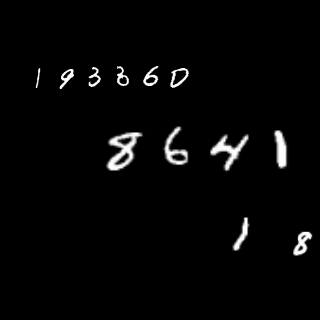 193360
8641
1 8